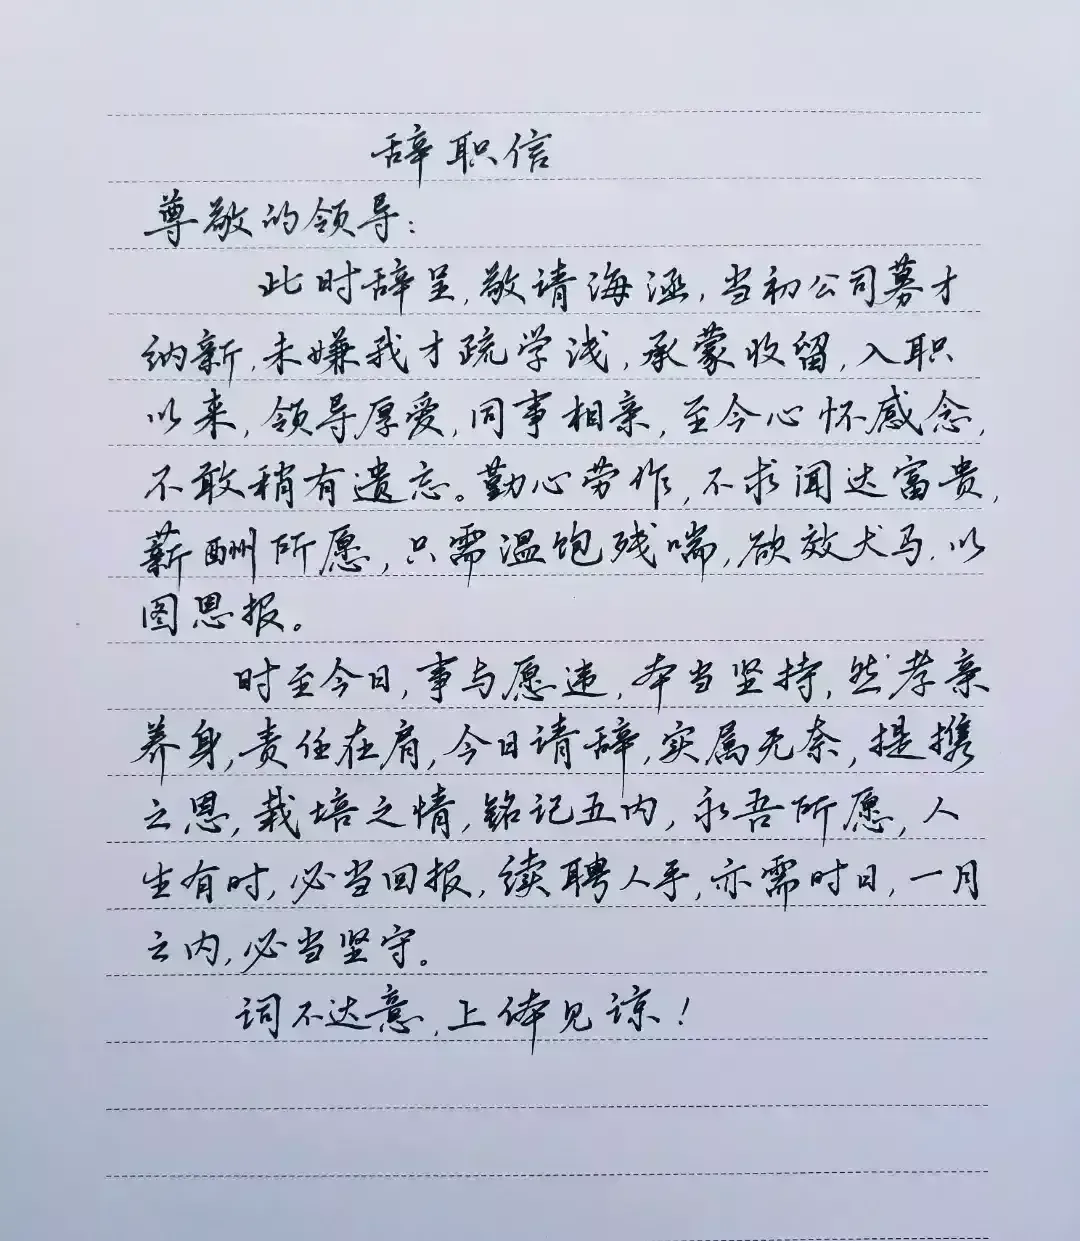 辞职信
尊敬的领导：
此时辞呈,敬请海涵,当初公司募才
纳新,未嫌我才疏学浅,承蒙收留,入职
以来,领导厚爱,同事相亲,至今心怀感念,
不敢稍有遗忘。勤心劳作,不求闻达富贵,
薪酬所愿,只需温饱残喘,欲效犬马,以
图恩报。
时至今日,事与愿违,本当坚持,然孝亲
养身,责任在肩,今日请辞,实属无奈,提携
之恩,栽培之情,铭记五内,永吾所愿,人
生有时,必当回报,续聘人手,亦需时日,一月
之内,必当坚守。
词不达意,上体见谅!